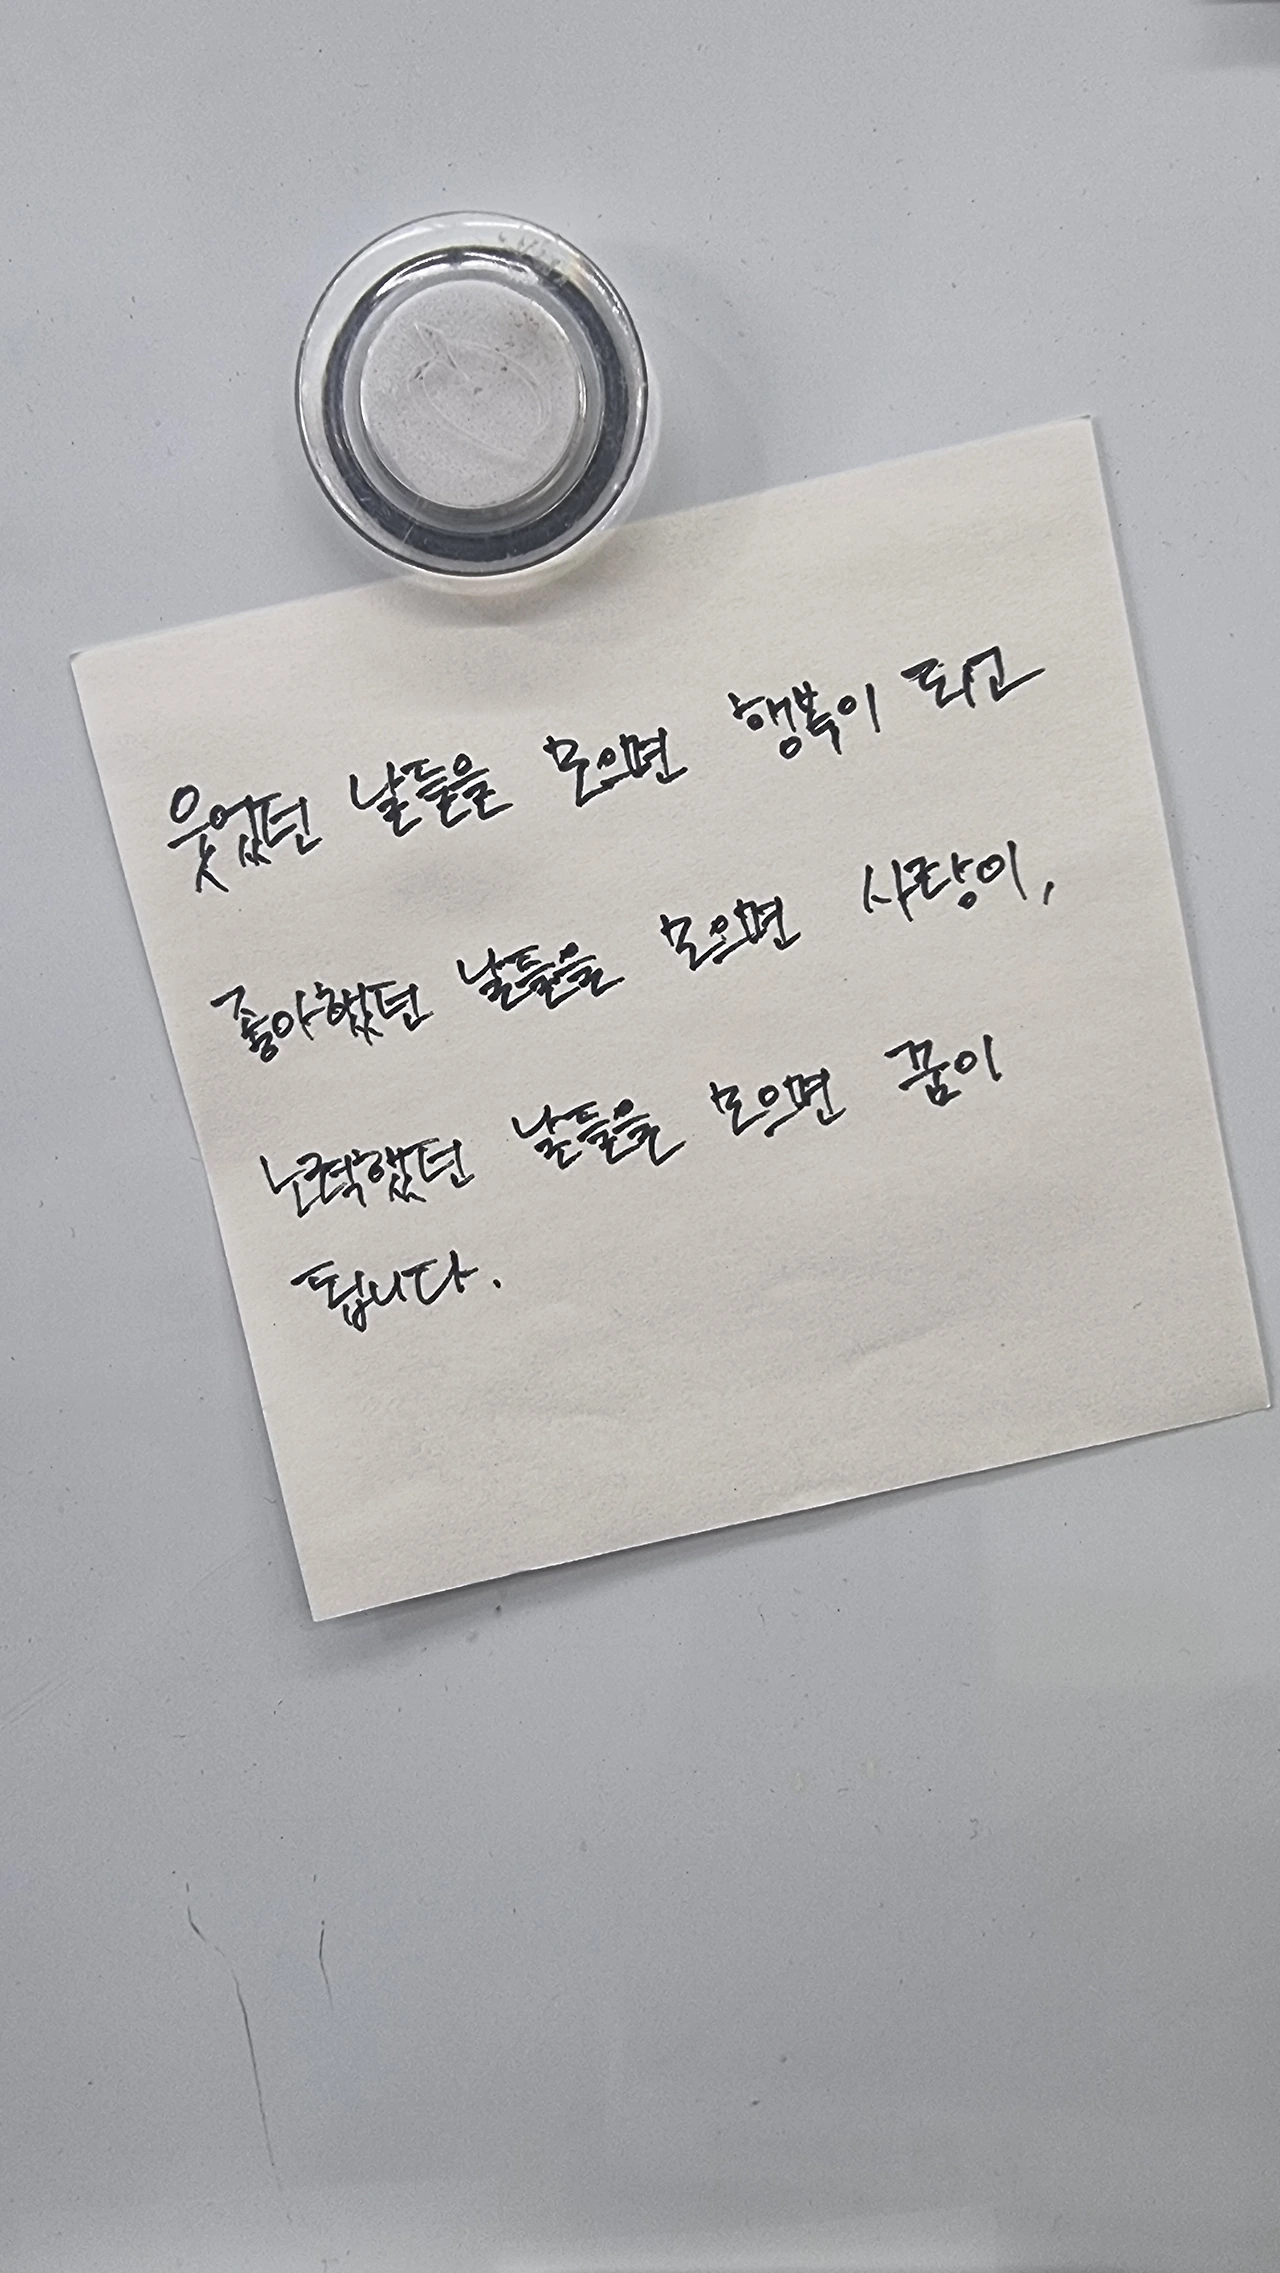 웃었던 날들을 모으면 행복이 되고
좋아했던 날들을 모으면 사랑이,
노력했던 날들을 모으면 꿈이
됩니다.